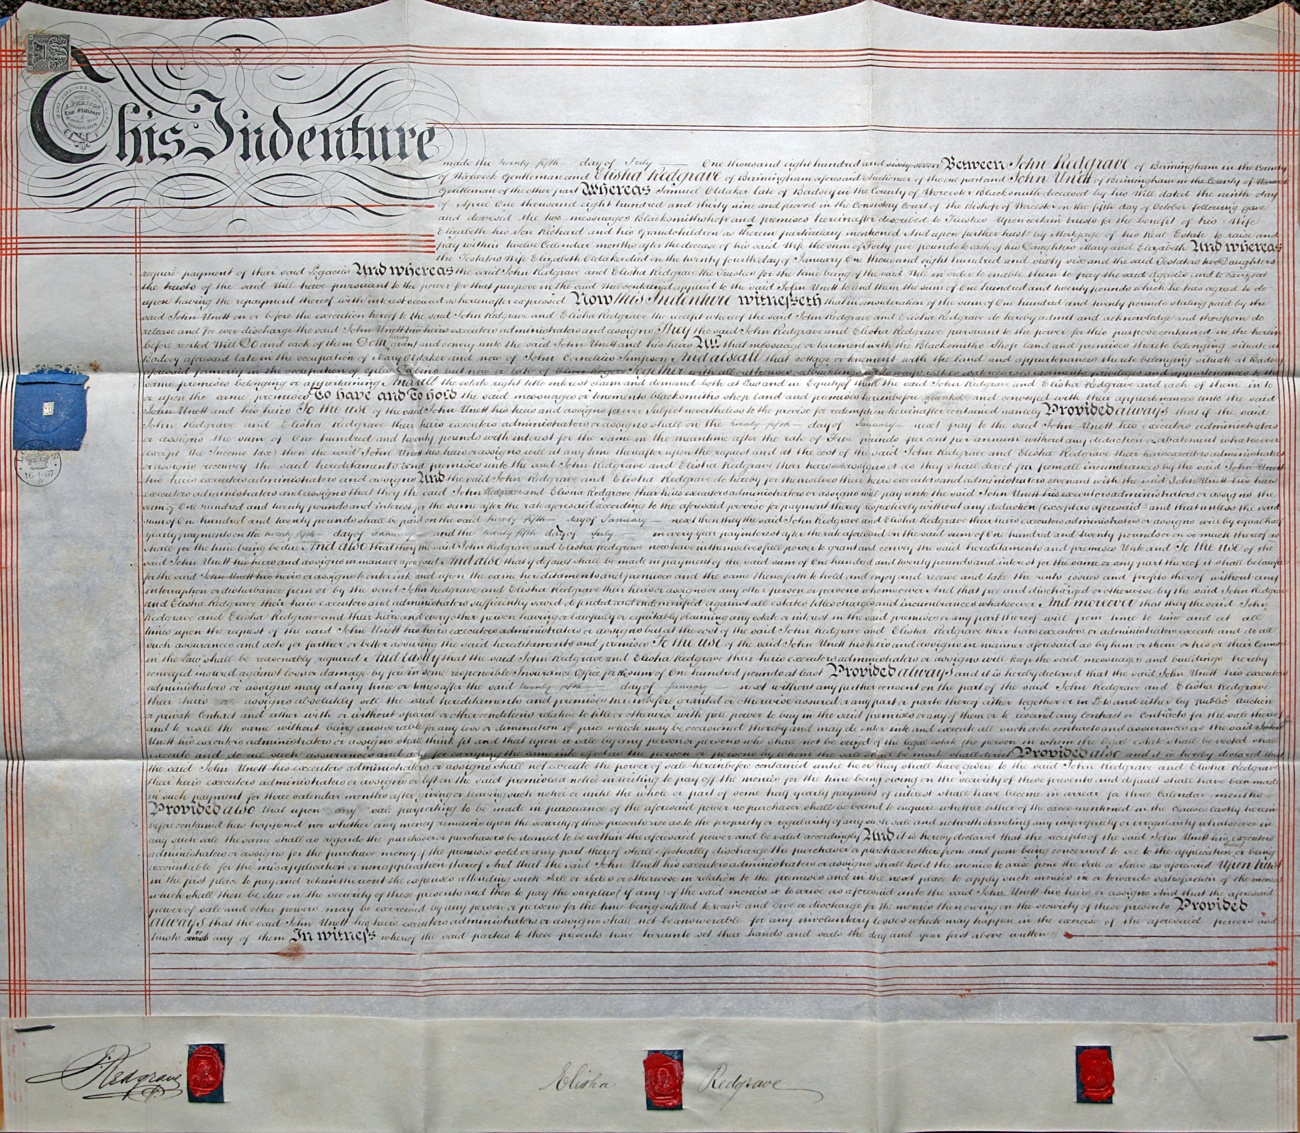 This Indenture
made the twenty fifth day of July One thousand eight hundred and sixty seven Between John Redgrave of Birmingham in the County
of Warwick Gentleman and Elisha Redgrave of Birmingham aforesaid of the one part and John Unett of Birmingham in the County of Warwick
Gentleman of the other part Whereas Samuel Oldaker late of Badsey in the County of Worcester Blacksmith deceased by his Will dated the ninth day
of April One thousand eight hundred and thirty nine and proved in the Consistory Court of the Bishop of Worcester on the fifth day of October following gave
and devised the two messuages Blacksmiths shop and premises hereinafter described to Trustees Upon certain trusts for the benefit of his Wife
Elizabeth his Son Richard and his Grandchildren as therein particularly mentioned And upon further trust by Mortgage of his Real Estate to raise and
pay within twelve Calendar months after the decease of his said Wife the sum of Forty five pounds to each of his Daughters Mary and Elizabeth And whereas
the Testators Wife Elizabeth Oldaker died on the twenty fourth day of January One thousand eight hundred and sixty six and the said Testators two Daughters
require payment of their said Legacies And whereas the said John Redgrave and Elisha Redgrave the Trustees for the time being of the said Will in order to enable them to pay the said Legacies and to carry out
the trusts of the said Will have pursuant to the power for that purpose in the said Will contained applied to the said John Unett to lend them the sum of One hundred and twenty pounds which he has agreed to do
upon having the repayment thereof with interest secured as hereinafter expressed Now this Indenture witnesseth that in consideration of the sum of One hundred and twenty pounds sterling paid by the
said John Unett on or before the execution hereof to the said John Redgrave and Elisha Redgrave the receipt whereof the said John Redgrave and Elisha Redgrave do hereby admit and acknowledge and therefrom do
release and for ever discharge the said John Unett his heirs executors administrators and assigns They the said John Redgrave and Elisha Redgrave pursuant to the power for this purpose contained in the herein
before recited Will Do and each of them Doth grant and convey unto the said John Unett and his heirs All that messuage or tenement with the Blacksmiths Shop land and premises thereto belonging situate at
Badsey aforesaid late in the occupation of Mary Oldaker and now of John Cornelius Simpson And also all that cottage or tenement with the land and appurtenances thereto belonging situate at Badsey
aforesaid formerly in the occupation of but now or late of Together with all
same premises belonging or appertaining And all the estate right title interest claim and demand both at Law and in Equity of them the said John Redgrave and Elisha Redgrave and each of them in to
or upon the same premises To have and to hold the said messuages or tenements blacksmiths shop land and premises hereinbefore granted and conveyed with their appurtenances unto the said
John Unett and his heirs To the use of the said John Unett his heirs and assigns for ever Subject nevertheless to the proviso for redemption hereinafter contained namely Provided always that if the said
John Redgrave and Elisha Redgrave their heirs executors administrators or assigns shall on the twenty fifth day of January next pay to the said John Unett his executors administrators
or assigns the sum of One hundred and twenty pounds with interest for the same in the meantime after the rate of Five pounds per cent per annum without any deduction or abatement whatsoever
(except the Income tax) then the said John Unett his heirs or assigns will at any time thereafter upon the request and at the cost of the said John Redgrave and Elisha Redgrave their heirs executors administrators
or assigns reconvey the said hereditaments and premises unto the said John Redgrave and Elisha Redgrave their heirs and assigns or as they shall direct free from all incumbrances by the said John Unett
his heirs executors administrators and assigns And the said John Redgrave and Elisha Redgrave do hereby for themselves their heirs executors and administrators covenant with the said John Unett his heirs
executors administrators and assigns that they the said John Redgrave and Elisha Redgrave their heirs executors administrators or assigns will pay unto the said John Unett his executors administrators or assigns the
sum of One hundred and twenty pounds and interest for the same after the rate aforesaid according to the aforesaid proviso for payment thereof respectively without any deduction (except as aforesaid) and that unless the said
sum of One hundred and twenty pounds shall be paid on the said twenty fifth day of January next then they the said John Redgrave and Elisha Redgrave their heirs executors administrators or assigns will by equal half
yearly payments on the twenty fifth day of January and the twenty fifth day of July in every year pay interest after the rate aforesaid on the said sum of One hundred and twenty pounds or so much thereof as
shall for the time being be due And also that they the said John Redgrave and Elisha Redgrave now have in themselves full power to grant and convey the said hereditaments and premises Unto and To the use of the
said John Unett his heirs and assigns in manner aforesaid And also that if default shall be made in payment of the said sum of One hundred and twenty pounds and interest for the same or any part thereof it shall be lawful
for the said John Unett his heirs or assigns to enter into and upon the same hereditaments and premises and the same thereafter to hold and enjoy and receive and take the rents issues and profits thereof without any
interruption or disturbance from or by the said John Redgrave and Elisha Redgrave their heirs or assigns or any other person or persons whomsoever And that free and discharged or otherwise by the said John Redgrave
and Elisha Redgrave their heirs executors and administrators sufficiently saved defended and indemnified against all estates titles charges and incumbrances whatsoever And moreover that they the said John
Redgrave and Elisha Redgrave and their heirs and every other person having or lawfully or equitably claiming any estate or interest in the said premises or any part thereof will from time to time and at all
times upon the request of the said John Unett his heirs executors administrators or assigns but at the cost of the said John Redgrave and Elisha Redgrave their heirs executors or administrators execute and do all
such assurances and acts for further or better assuring the said hereditaments and premises To the use of the said John Unett his heirs and assigns in manner aforesaid as by him or them or his or their Counsel
in the Law shall be reasonably required And lastly that the said John Redgrave and Elisha Redgrave their heirs executors administrators or assigns will keep the said messuages and buildings hereby
conveyed insured against loss or damage by fire in some responsible Insurance Office for the sum of One hundred pounds at least Provided always and it is hereby declared that the said John Unett his executors
administrators or assigns may at any time or times after the said twenty fifth day of January next without any further consent on the part of the said John Redgrave and Elisha Redgrave
their heirs or assigns absolutely sell the said hereditaments and premises hereinbefore granted or otherwise assured or any part or parts thereof either together or in Lots and either by public auction
or private Contract and either with or without special or other conditions relative to title or otherwise with full power to buy in the said premises or any of them or to rescind any Contract or Contracts for the sale thereof
and to resell the same without being answerable for any loss or diminution of price which may be occasioned thereby and may do enter into and execute all such acts contracts and assurances as the said John
Unett his executors administrators or assigns shall think fit and that upon or sale by any person or persons who shall not be seized of the legal estate the person in whom the legal estate shall be vested shall
execute and do all such assurances and acts for carrying the same into effect as the person or persons by whom the sale shall be made shall direct Provided also and it is hereby declared that
the said John Unett his executors administrators or assigns shall not execute the power of sale hereinbefore contained until he or they shall have given to the said John Redgrave and Elisha Redgrave
their heirs executors administrators or assigns or left on the said premises a notice in writing to pay off the monies for the time being owing on the security of these presents and default shall have been made
in such payment for three calendar months after giving or leaving such notice or until the whole or part of some half yearly payment of interest shall have become in arrear for three Calendar months
Provided also that upon any sale purporting to be made in pursuance of the aforesaid power no purchaser shall be bound to enquire whether either of the cases mentioned in the clause lastly herein
before contained has happened nor whether any money remains upon the security of these presents nor as to the propriety or regularity of any such sale and notwithstanding any impropriety or irregularity whatsoever in
any such sale the same shall as regards the purchaser or purchasers be deemed to be within the aforesaid power and be valid accordingly And it is hereby declared that the receipts of the said John Unett his executors
administrators or assigns for the purchase money of the premises sold or any part thereof shall effectually discharge the purchaser or purchasers therefrom and from being concerned to see to the application or being
accountable for the misapplication or nonapplication thereof And that the said John Unett his executors administrators or assigns shall hold the monies to arise from the sale or sales as aforesaid Upon trust
in the first place to pay and retain thereout the expenses attending such sale or sales or otherwise in relation to the premises and in the next place to apply such monies in or towards satisfaction of the monies
which shall then be due on the security of these presents and then to pay the surplus (if any) of the said monies so to arise as aforesaid unto the said John Unett his heirs or assigns And that the aforesaid
power of sale and other powers may be exercised by any person or persons for the time being entitled to receive and give a discharge for the monies then owing on the security of these presents Provided
always that the said John Unett his heirs executors administrators or assigns shall not be answerable for any involuntary losses which may happen in the exercise of the aforesaid powers and
trusts or any of them In witness whereof the said parties to these presents have hereunto set their hands and seals the day and year first above written
J Redgrave
Elisha Redgrave